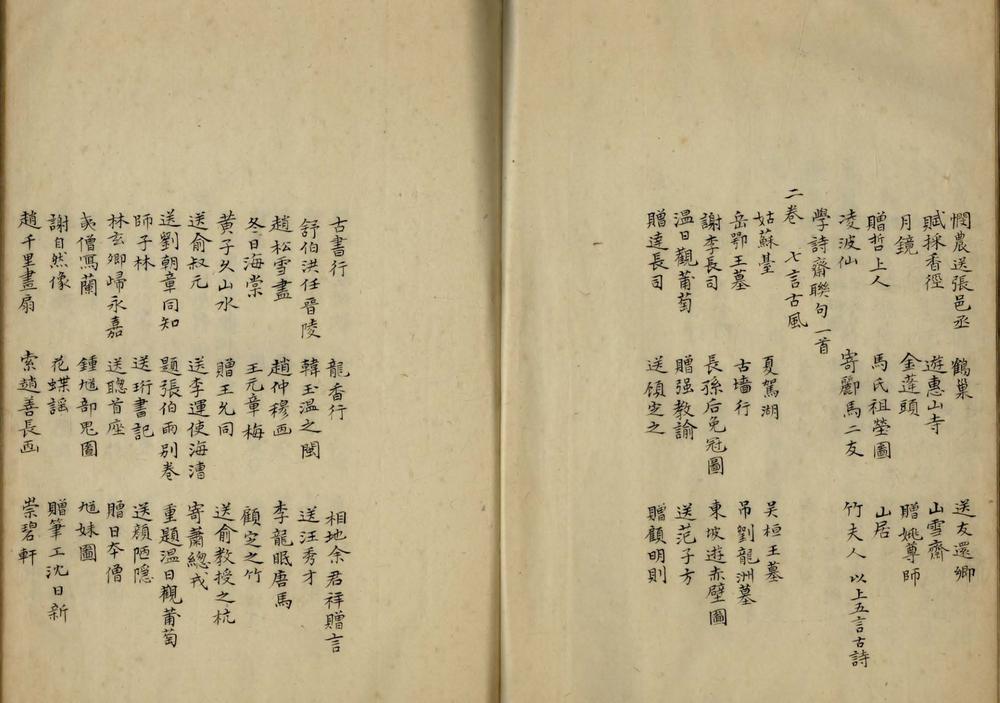 憫農送張邑丞　鶴巢　送友還鄉
賦採香徑　遊惠山寺　山雪齋
月鏡　金蓮頭　贈姚尊師
贈哲上人　馬氏祖塋圖　山居
凌波仙　寄酈馬二友　竹夫人　以上五言古詩
學詩齋聯句一首
二卷　七言古風
姑蘇臺　夏駕湖　吴桓王墓
岳鄂王墓　古墻行　吊劉龍洲墓
謝李長司　長孫后免冠圖　東坡遊赤壁圖
温日觀葡萄　贈强教諭　送范子方
贈逵長司　送顧定之　贈顧明則
古書行　龍香行　相地余君祥贈言
舒伯洪任晉陵　韓玉温之閩　送汪秀才
趙松雪畫　趙仲穆画　李龍眠唐馬
冬日海棠　王元章梅　顧定之竹
黄子久山水　贈王允同　送俞教授之杭
送俞叔元　送李運使海漕　寄蕭總戎
送劉朝章同知　題張伯雨别卷　重題温日觀葡萄
師子林　送珩書記　送顔陋隱
林玄卿歸永嘉　送聰首座　贈日夲僧
夷僧寫蘭　鍾馗部鬼圖　馗妹圖
謝自然像　花蝶謡　贈筆工沈日新
趙千里畫扇　索趙善長画　崇碧軒